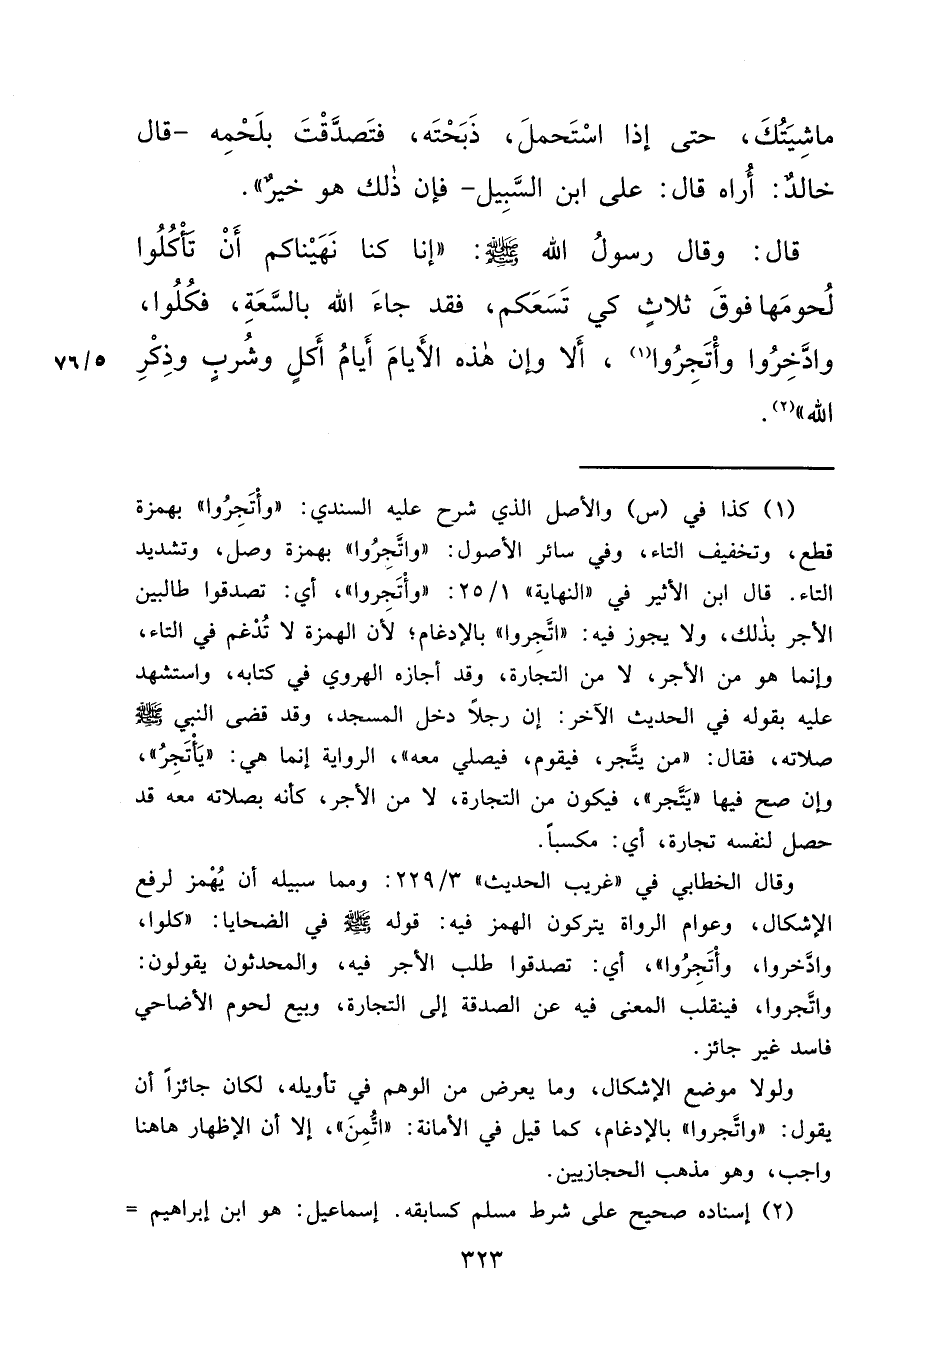 ماشِيَتُكَ، حتى إذا اسْتَحملَ، ذَبَحْتَه، فتَصدَّقْتَ بلَحْمِه -قال
خالدٌ: أُراه قال: على ابن السَّبِيل- فإن ذٰلك هو خيرٌ».
قال: وقال رسولُ الله ﷺ: «إنا كنا نَهَيْناكم أَنْ تَأْكُلُوا
لُحومَها فوقَ ثلاثٍ كي تَسَعَكم، فقد جاءَ الله بالسَّعَةِ، فكُلُوا،
وادَّخِرُوا وأْتَجِرُوا(١)، أَلا وإن هٰذه الأَيامَ أَيامُ أَكلٍ وشُربٍ وذِكْرِ ٧٦/٥
الله»(٢).
(١) كذا في (س) والأصل الذي شرح عليه السندي: «وأْتَجِرُوا» بهمزة
قطع، وتخفيف التاء، وفي سائر الأصول: «واتَّجِرُوا» بهمزة وصل، وتشديد
التاء. قال ابن الأثير في «النهاية» ٢٥/١: «وأْتَجِروا»، أي: تصدقوا طالبين
الأجر بذٰلك، ولا يجوز فيه: «اتَّجِروا» بالإدغام؛ لأن الهمزة لا تُدْغم في التاء،
وإنما هو من الأجر، لا من التجارة، وقد أجازه الهروي في كتابه، واستشهد
عليه بقوله في الحديث الآخر: إن رجلاً دخل المسجد، وقد قضى النبي ﷺ
صلاته، فقال: «من يتَّجر، فيقوم، فيصلي معه»، الرواية إنما هي: «يَأْتَجِرُ»،
وإن صح فيها «يَتَّجر»، فيكون من التجارة، لا من الأجر، كأنه بصلاته معه قد
حصل لنفسه تجارة، أي: مكسباً.
وقال الخطابي في «غريب الحديث» ٢٢٩/٣: ومما سبيله أن يُهْمز لرفع
الإشكال، وعوام الرواة يتركون الهمز فيه: قوله ﷺ في الضحايا: «كلوا،
وادَّخروا، وأْتَجِرُوا»، أي: تصدقوا طلب الأجر فيه، والمحدثون يقولون:
واتَّجروا، فينقلب المعنى فيه عن الصدقة إلى التجارة، وبيع لحوم الأضاحي
فاسد غير جائز.
ولولا موضع الإشكال، وما يعرض من الوهم في تأويله، لكان جائزاً أن
يقول: «واتَّجروا» بالإدغام، كما قيل في الأمانة: «اتُّمِنَ»، إلا أن الإظهار هاهنا
واجب، وهو مذهب الحجازيين.
(٢) إسناده صحيح على شرط مسلم كسابقه. إسماعيل: هو ابن إبراهيم =
٣٢٣